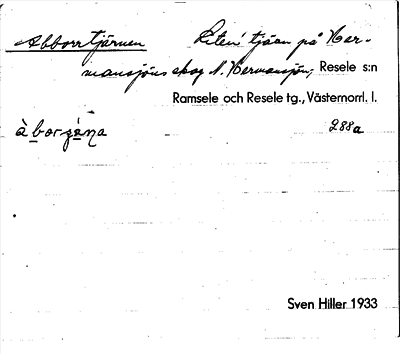 Abborrtjärnen Liten tjärn på Her-
mansjöns skog N. Hermansjön, Resele s:n
Ramsele och Resele tg., Västernorrl. l.
288a
Sven Hiller 1933